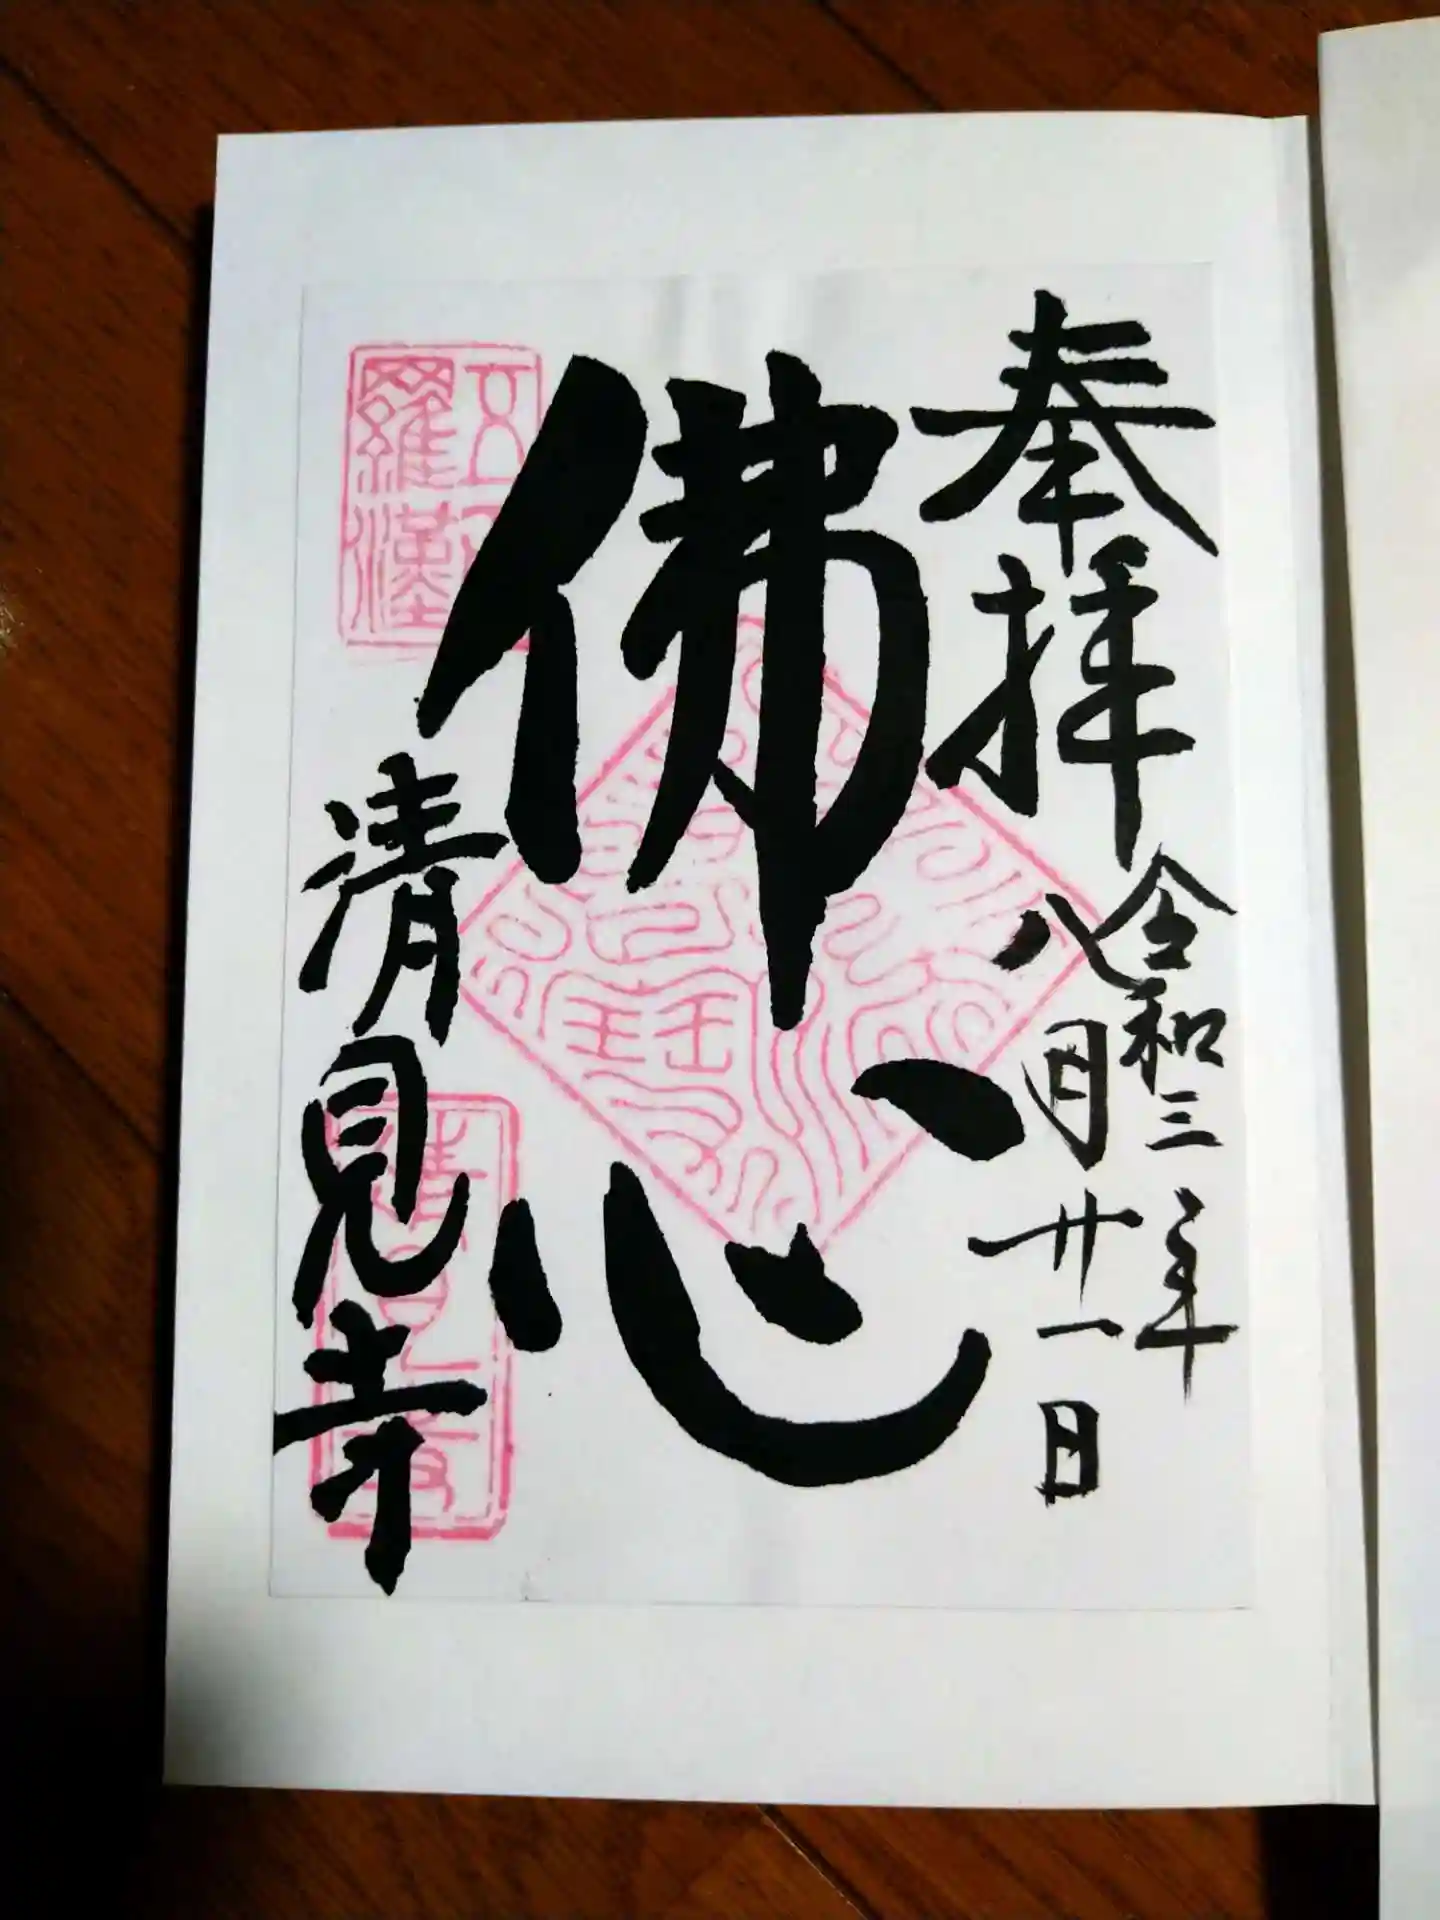 奉拝
令和三年
八月廿一日
佛心
清見寺
五百
羅漢